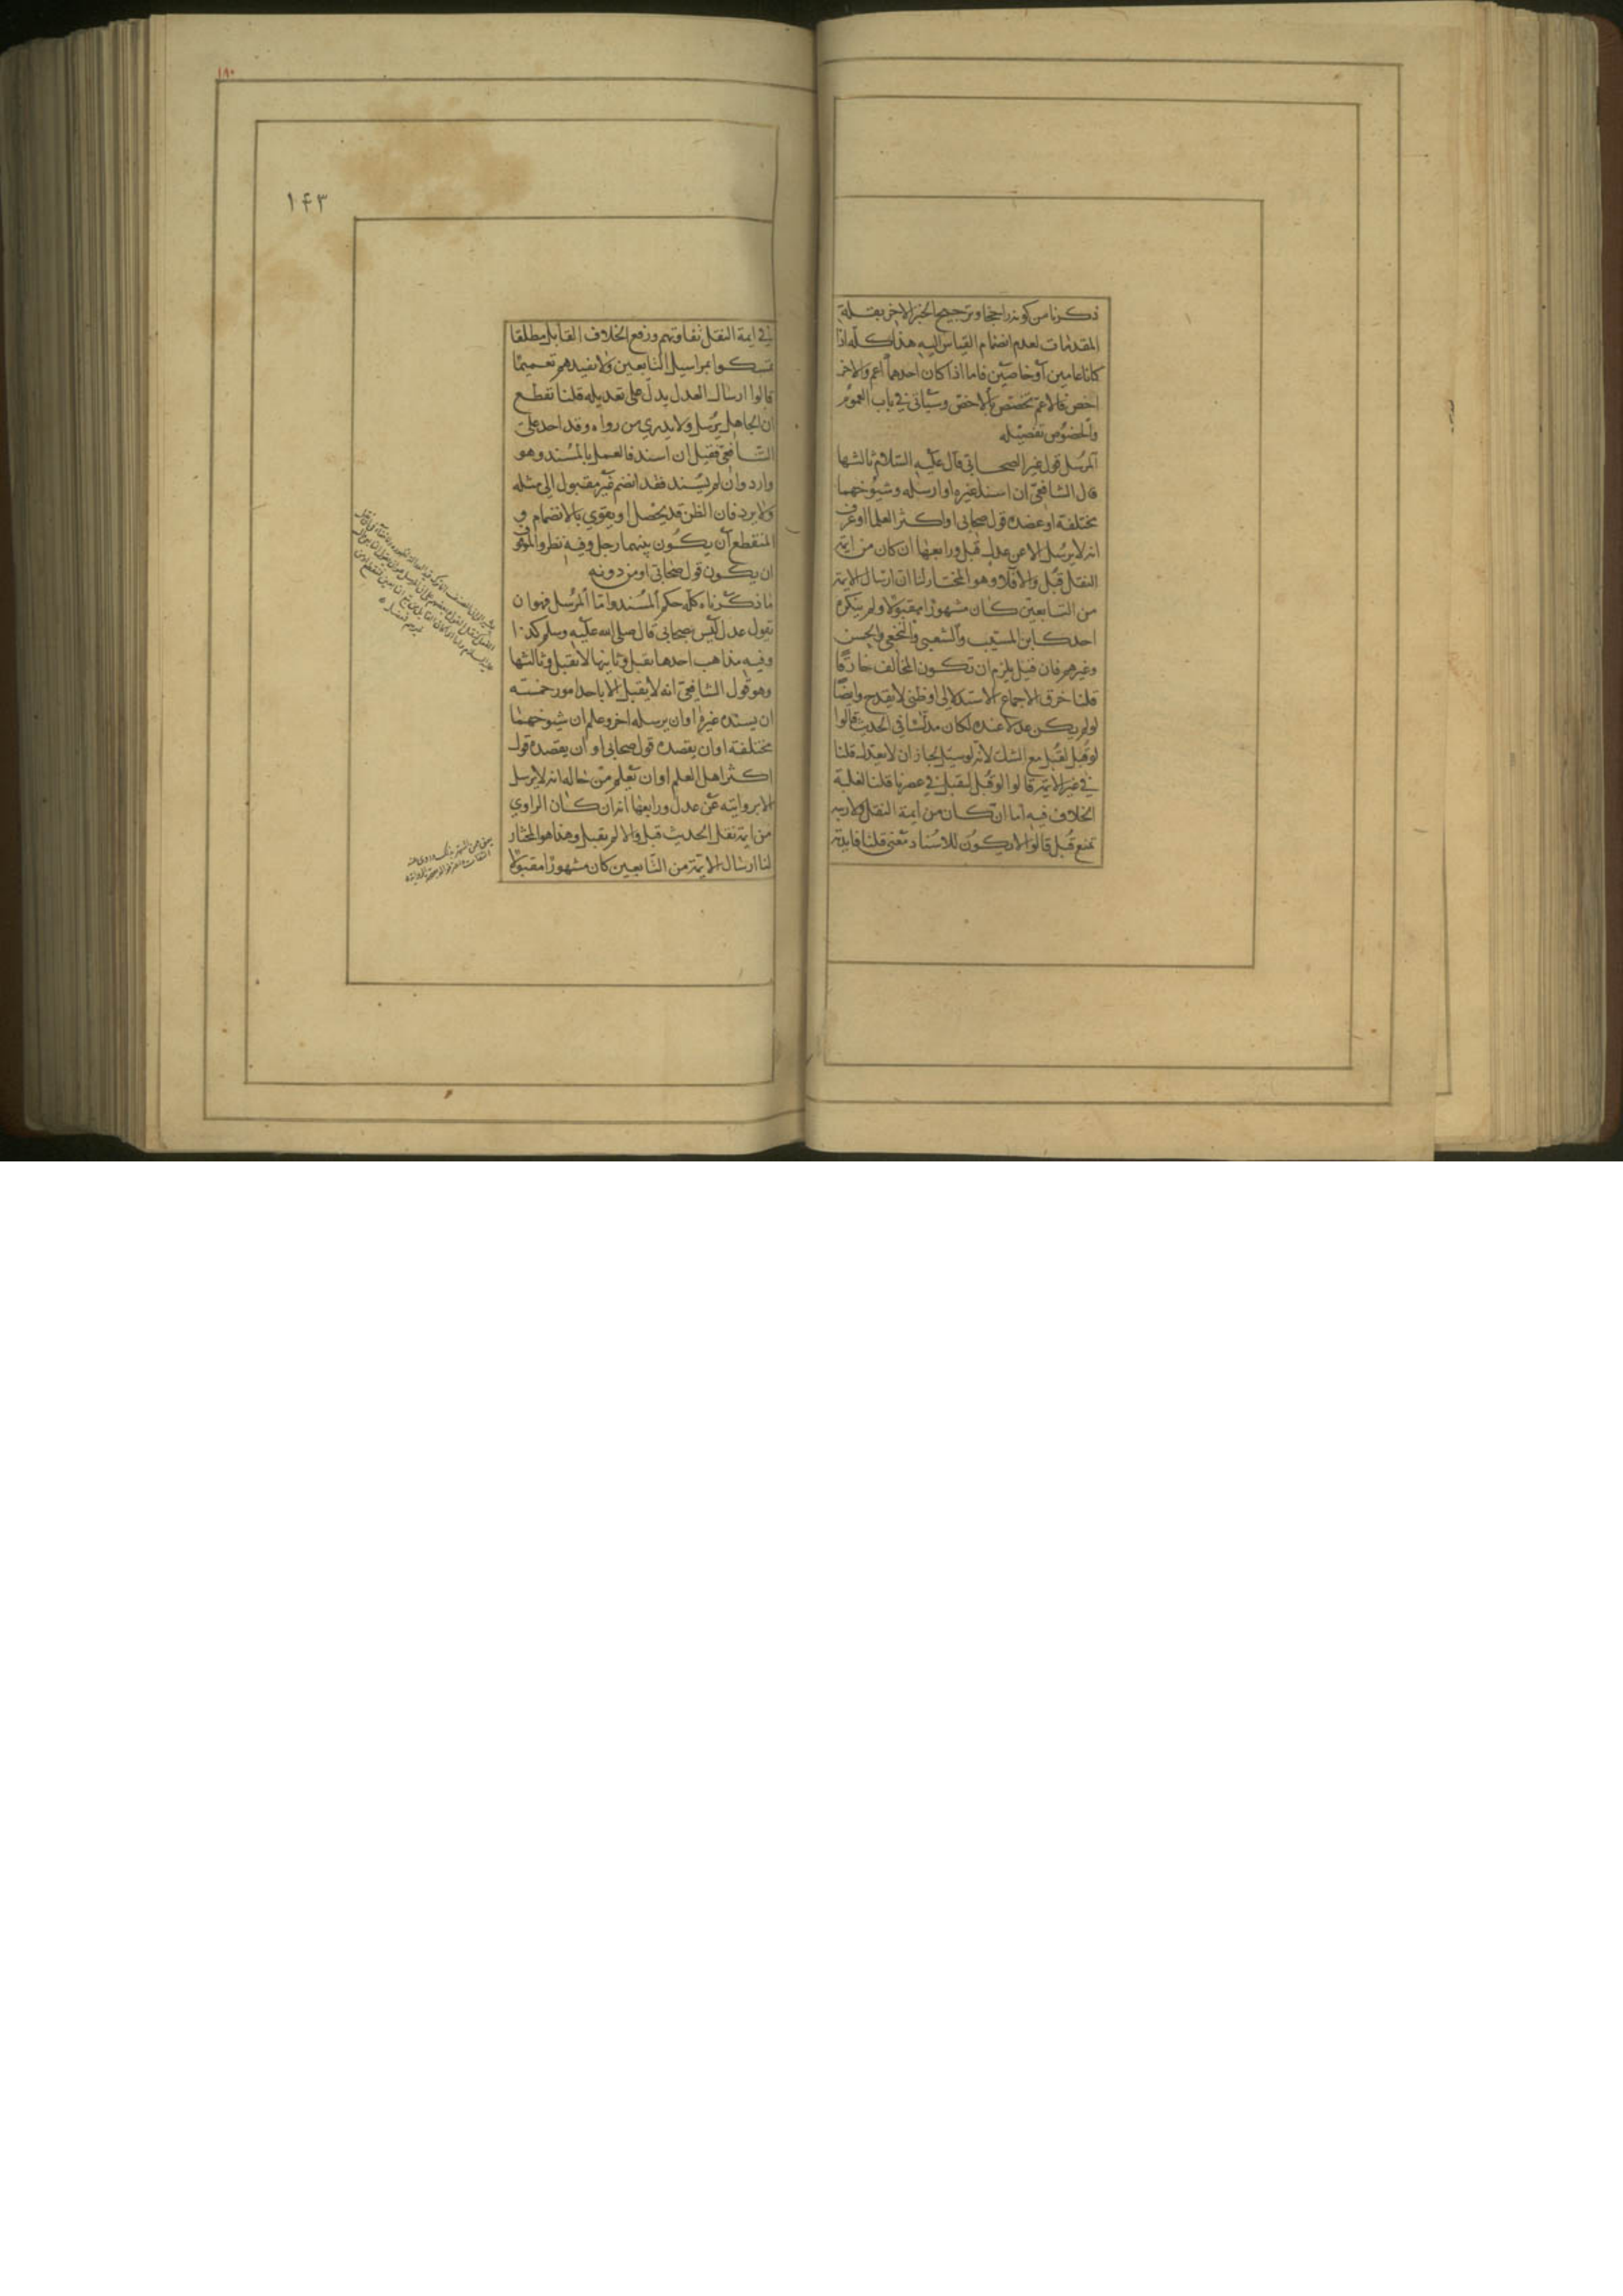 ذكرنا من كونه راجحا وترجيح الخبر الاخر بقلة
المقدمات لعدم انضمام القياس اليه هذا كله اذا
كانا عامين او خاصين فاما اذا كان احدهما اعم والاخر
اخص فالاعم تخصص بالاخص وسياتي في باب العموم
والخصوص تفصيله
المرسل قول غير الصحابي قال عليه السلام ثالثها
قال الشافعي ان اسند غيره او ارسله وشيوخهما
مختلفة او عضده قول صحابي او اكثر العلما او عرف
انه لا يرسل الا عن عدل قبل ورابعها ان كان من ايمة
النقل قبل والا فلا وهو المختار لنا ان ارسال الايمة
من التابعين كان مشهورا مقبولا ولم ينكره
احد كابن المسيب والشعبي والنخعي والحسن
وغيرهم فان قيل يلزم ان تكون المخالف خارقا
قلنا خرق الاجماع الاستدلالي او ظني لا يقدح وايضا
لو لم يكن عدلا عنده لكان مدلسا في الحديث قالوا
لو قبل لقبل مع الشك لانه لو سيل لجاز ان لا يعدل قلنا
في غير الايمة قالوا لو قبل لقبل في عصرنا قلنا لغلبة
الخلاف فيه اما ان كان من ايمة النقل ولا ريبة
تمنع قبل قالوا لا يكون للاسناد معنى قلنا فايدته
١٨٠
١٤٣
في ايمة النقل تفاوتهم ورفع الخلاف القابل مطلقا
تمسكوا بمراسيل التابعين ولا يفيدهم تعميما
قالوا ارسال العدل يدل على تعديله قلنا نقطع
ان الجاهل يرسل ولا يدري من رواه وقد اخذ على
الشافعي فقيل ان اسند فالعمل بالمسند وهو
وارد وان لم يسند فقد انضم غير مقبول الى مثله
ولا يرد فان الظن قد يحصل او يقوي بالانضمام و
المنقطع ان يكون بينهما رجل وفيه نظر والموقوف
ان يكون قول صحابي او من دونه
ما ذكرناه كله حكم المسند واما المرسل فهو ان
تقول عدل ليس بصحابي قال صلى الله عليه وسلم كذا
وفيه مذاهب احدها يقبل وثانيها لا تقبل وثالثها
وهو قول الشافعي انه لا يقبل الا باحد امور خمسة
ان يسنده غيره او ان يرسله اخر وعلم ان شيوخهما
مختلفة او ان يعضده قول صحابي او ان يعضده قول
اكثر اهل العلم او ان تعلم من حاله انه لا يرسل
الا بروايته عن عدل ورابعها انه ان كان الراوي
من ايمة نقل الحديث قبل والا لم يقبل وهذا هو المختار
لنا ارسال الايمة من التابعين كان مشهورا مقبولا